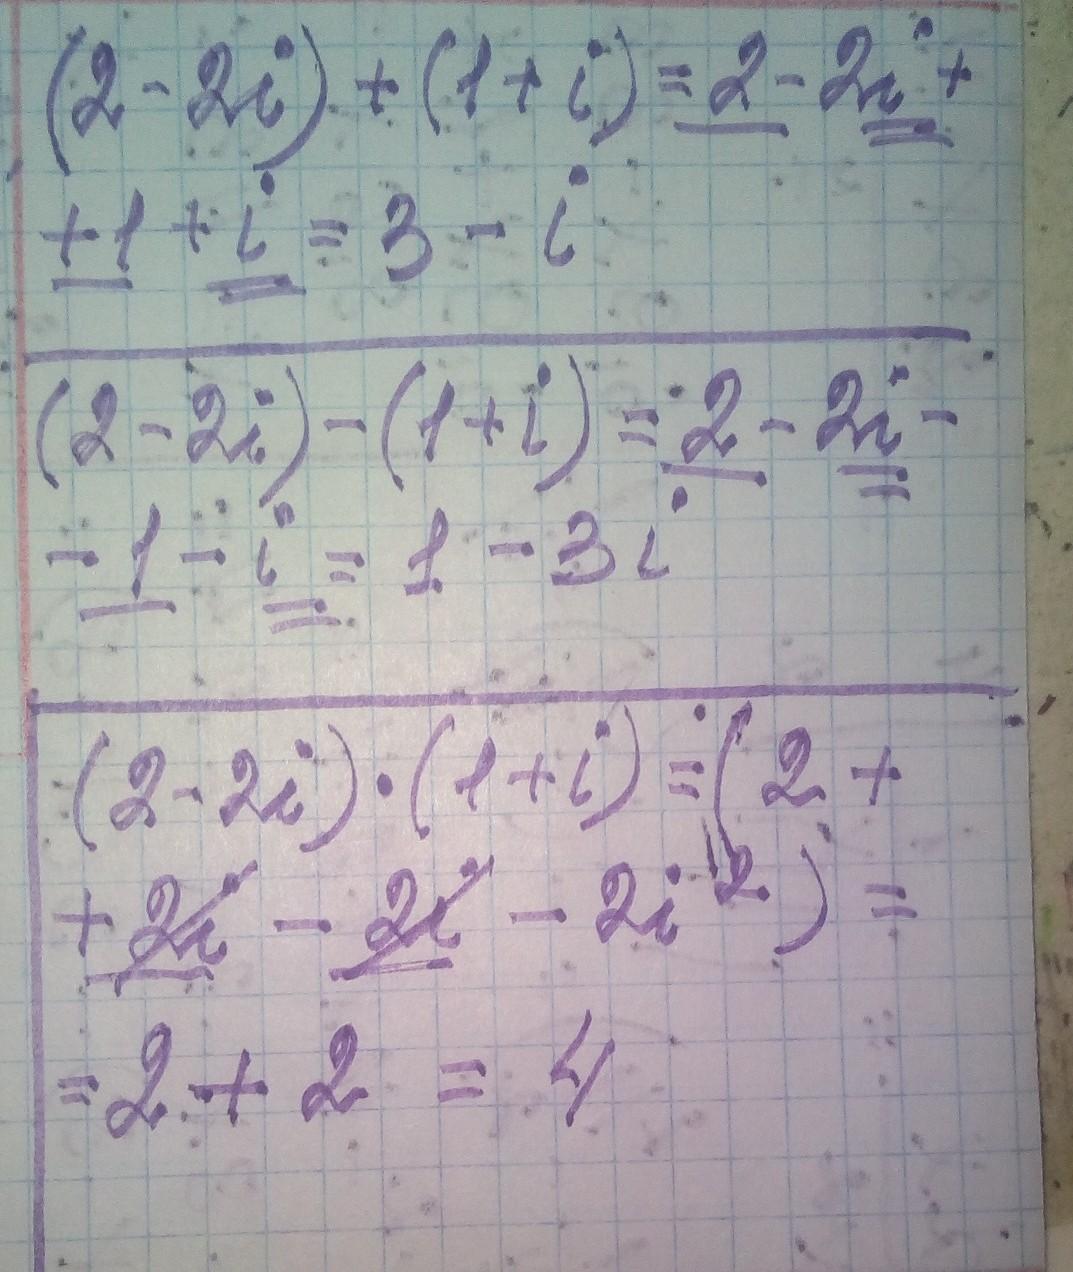 (2 - 2i) + (1 + i) = 2 - 2i +
+ 1 + i = 3 - i
(2 - 2i) - (1 + i) = 2 - 2i -
- 1 - i = 1 - 3i
(2 - 2i) · (1 + i) = (2 +
+ 2i - 2i - 2i²) =
= 2 + 2 = 4